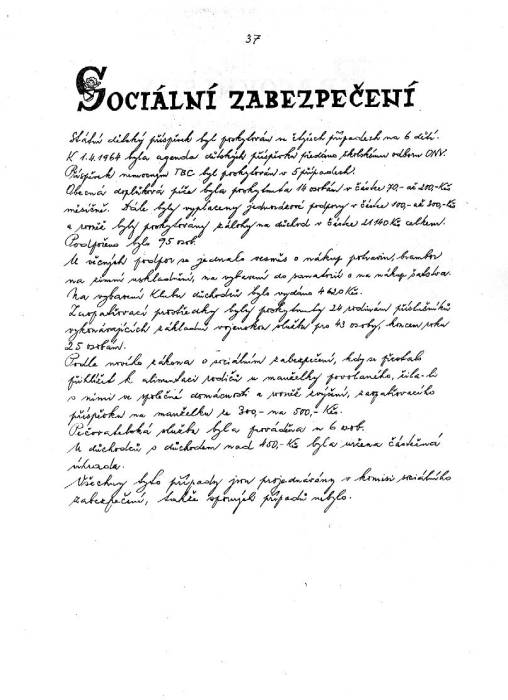 37
SOCIÁLNÍ ZABEZPEČENÍ
Státní dětský příspěvek byl poskytován ve čtyřech případech na 6 dětí.
K 1.4.1964 byla agenda dětských příspěvků předána školskému odboru ONV.
Příspěvek nemocným TBC byl poskytován v 5 případech.
Obecná doplňková péče byla poskytnuta 14 osobám v částce 70,- až 200,-Kčs
měsíčně. Dále byly vyplaceny jednorázové podpory v částce 100,- až 300,-Kčs
a rovněž byly poskytovány zálohy na důchod v částce 21140 Kčs celkem.
Podpořeno bylo 95 osob.
U věcných podpor se jednalo vesměs o nákup potravin, brambor
na zimní uskladnění, na vybavení do sanatorií a na nákup šatstva.
Na vybavení Klubu důchodců bylo vydáno 4 620 Kčs.
Zaopatřovací prostředky byly poskytnuty 24 rodinám příslušníků
vykonávajících základní vojenskou službu pro 43 osoby, koncem roku
25 osobám.
Podle nového zákona o sociálním zabezpečení, kdy se přestalo
přihlížet k alimentaci rodičů u manželky povolaného, žila-li
s nimi ve společné domácnosti a rovněž zvýšení, zaopatřovacího
příspěvku na manželku ze 300,- na 500,- Kčs.
Pečovatelská služba byla prováděna u 6 osob.
U důchodců s důchodem nad 450,-Kčs byla určena částečná
úhrada.
Všechny tyto případy jsou projednávány v komisi sociálního
zabezpečení, takže sporných případů nebylo.